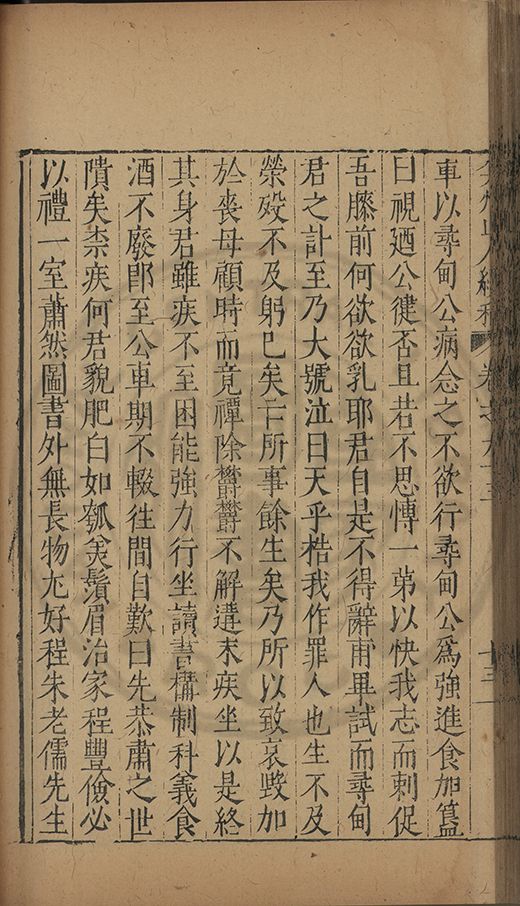 弇州山人續稿 卷之九十三 十三
車以尋甸公病念之不欲行尋甸公爲強進食加簋
曰視廼公健否且若不思慱一第以快我志而剌促
吾膝前何欲欲乳耶君自是不得辭甫畢試而尋甸
君之訃至乃大號泣曰天乎梏我作罪人也生不及
榮殁不及躬巳矣亡所事餘生矣乃所以致哀毀加
於喪母顧時而竟禫除欝欝不解遘末疾坐以是終
其身君雖疾不至困能強力行坐讀書構制科義食
酒不廢卽至公車期不輟徃間自歎曰先恭肅之世
隤矣柰疾何君貌肥白如瓠羙鬚眉治家程豐儉必
以禮一室蕭然圖書外無長物尢好程朱老儒先生